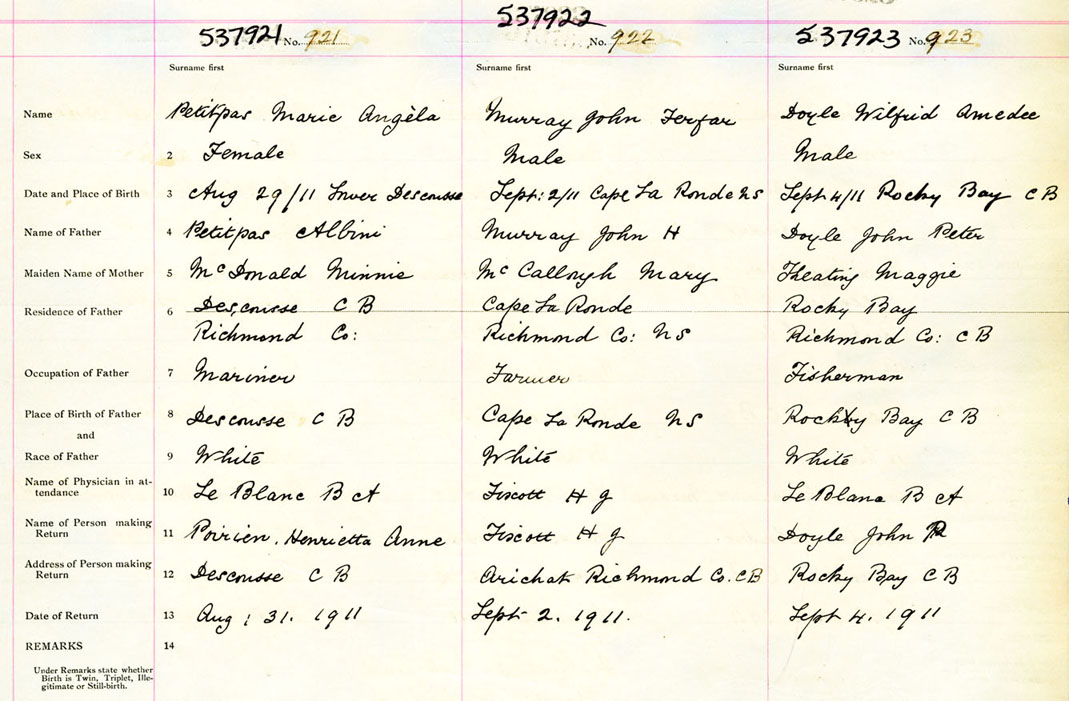 537921 No. 921 537922 No. 922 537923 No. 923
Surname first Surname first Surname first
Name Petitpas Marie Angèla Murray John Doyle Wilfrid Amedee
Sex 2 Female Male Male
Date and Place of Birth 3 Aug 29/11 Descousse Sept: 2/11 Cape La Ronde NS Sept 4/11 Rocky Bay C B
Name of Father 4 Petitpas Albini Murray John H Doyle John Peter
Maiden Name of Mother 5 McDonald Minnie Mc Callough Mary Maggie
Residence of Father 6 Descousse C B Cape La Ronde Rocky Bay
Richmond Co: Richmond Co: N S Richmond Co: C B
Occupation of Father 7 Mariner Farmer Fisherman
Place of Birth of Father 8 Descousse C B Cape La Ronde N S Rocky Bay C B
and
Race of Father 9 White White White
Name of Physician in at-
tendance 10 Le Blanc B A H G Le Blanc B A
Name of Person making
Return 11 Henrietta Anne H G Doyle John P
Address of Person making
Return 12 Descousse C B Arichat Richmond Co. CB Rocky Bay C B
Date of Return 13 Aug: 31. 1911 Sept 2. 1911. Sept 4. 1911
REMARKS 14
Under Remarks state whether
Birth is Twin, Triplet, Ille-
gitimate or Still-birth.